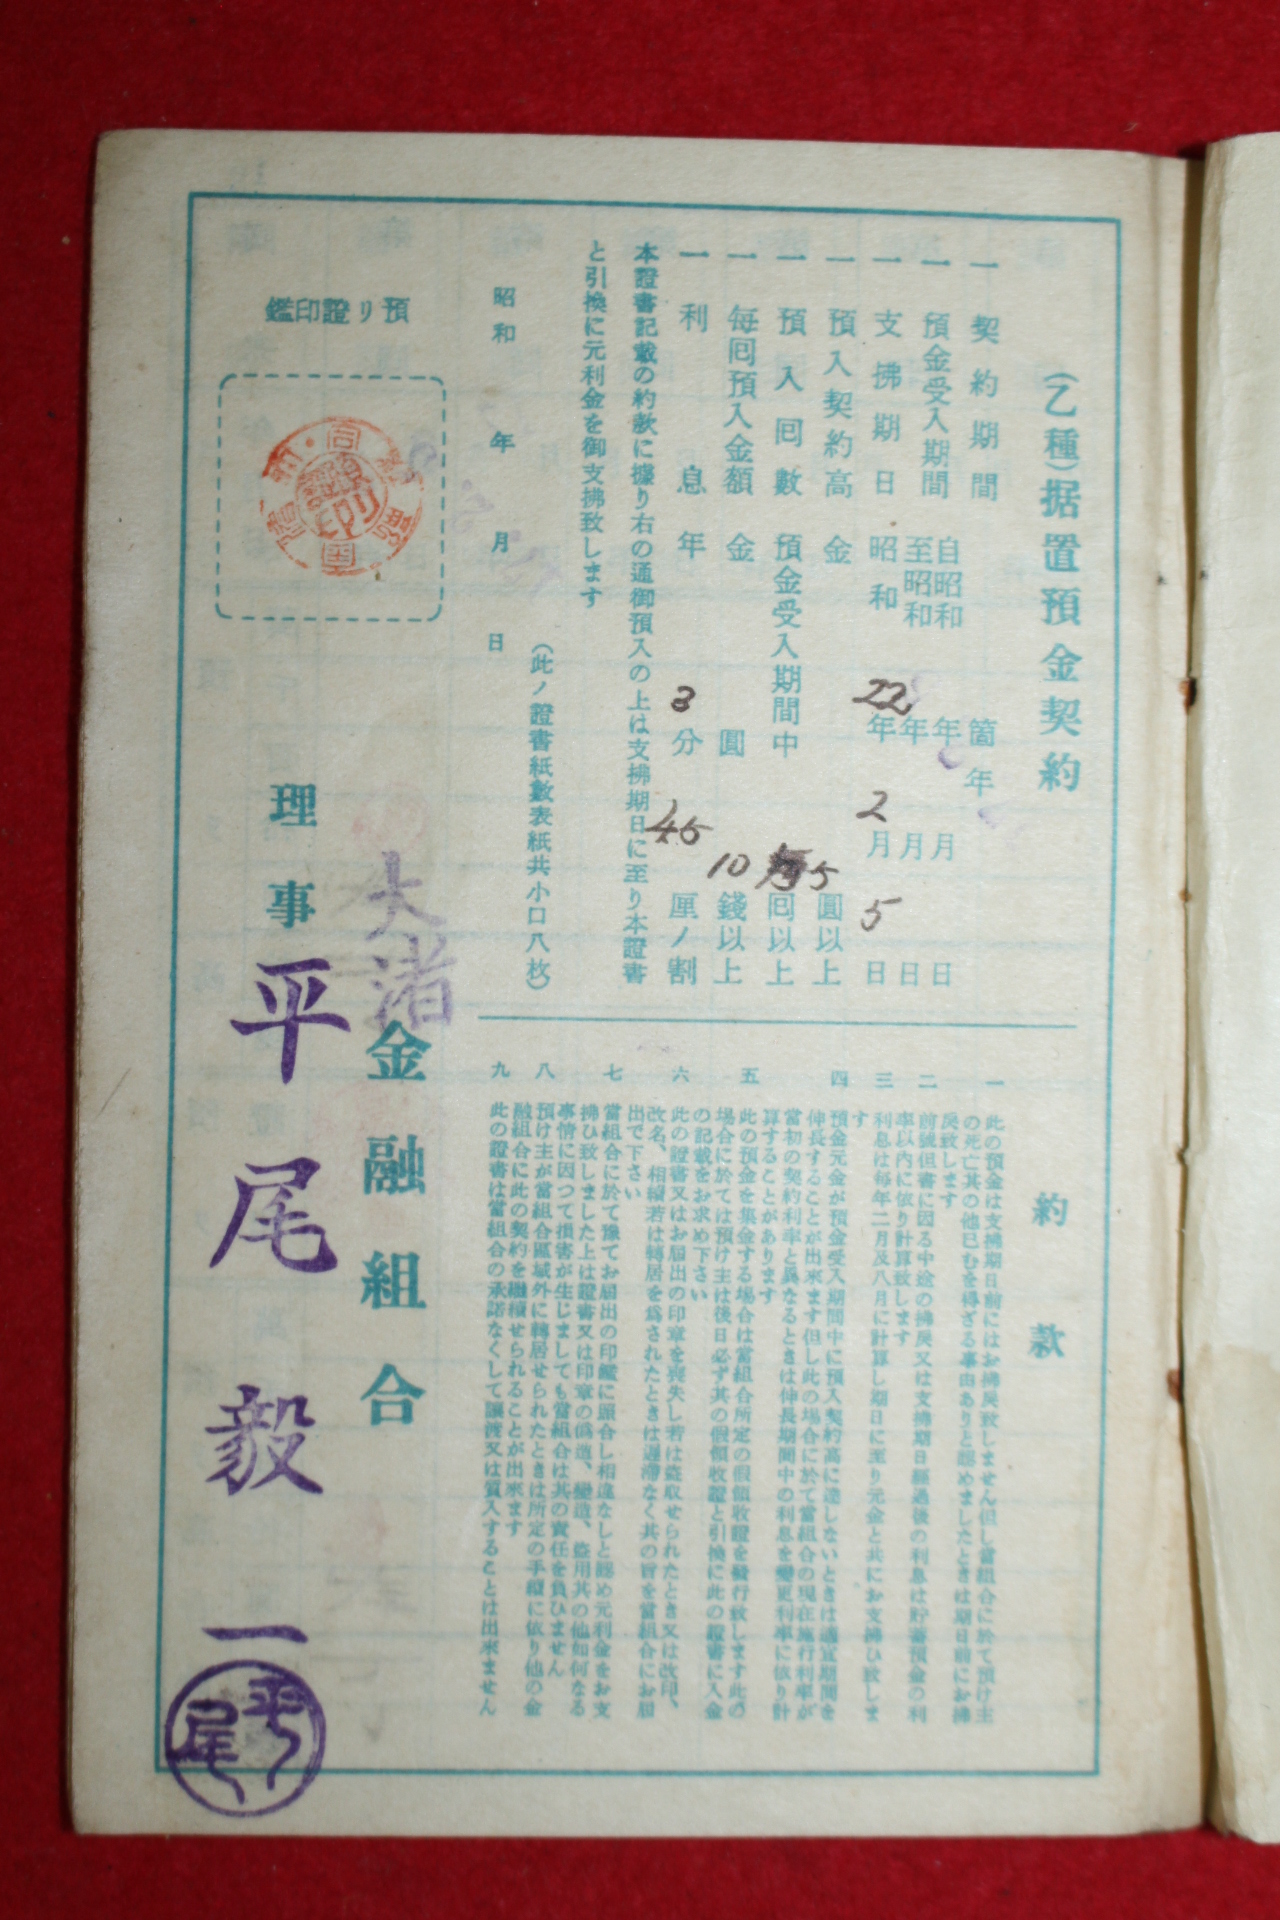 (乙種)据置預金契約
一 契約期間 箇年
一 預金受入期間 自昭和 年 月 日
至昭和 年 月 日
一 支拂期日 昭和 22年 2月 5日
一 預入契約高 金 5圓以上
一 預入囘數 預金受入期間中 囘以上
一 每囘預入金額 金 圓 10錢以上
一 利息年 3分 45厘ノ割
本證書記載の約款に據り右の通御預入の上は支拂期日に至り本證書
と引換に元利金を御支拂致します
(此ノ證書紙數表紙共小口八枚)
昭和 年 月 日
大渚金融組合
理事 平尾毅一
平尾
預リ證印鑑
約款
一 此の預金は支拂期日前にはお拂戾致しません但し當組合に於て預け主
の死亡其の他已むを得ざる事由ありと認めましたときは期日前にお拂
戾致します
二 前號但書に因る中途の拂戾又は支拂期日經過後の利息は貯蓄預金の利
率以內に依り計算致します
三 利息は每年二月及八月に計算し期日に至り元金と共にお支拂ひ致しま
す
四 預金元金が預金受入期間中に預入契約高に達しないときは適宜期間を
伸長することが出來ます但し此の場合に於て當組合の現在施行利率が
當初の契約利率と異なるときは伸長期間中の利息を變更利率に依り計
算することがあります
五 此の預金を集金する場合は當組合所定の假領收證を發行致します此の
場合に於ては預け主は後日必ず其の假領收證と引換に此の證書に入金
の記載をお求め下さい
六 此の證書又はお届出の印章を喪失し若は盜取せられたとき又は改印、
改名、相續若は轉居を爲されたときは遲滯なく其の旨を當組合にお届
出で下さい
七 當組合に於て豫てお届出の印鑑に照合し相違なしと認め元利金をお支
拂ひ致しました上は證書又は印章の僞造、變造、盜用其の他如何なる
事情に因つて損害が生じましても當組合は其の責任を負ひません
八 預け主が當組合區域外に轉居せられたときは所定の手續に依り他の金
融組合に此の契約を繼續せられることが出來ます
九 此の證書は當組合の承諾なくして讓渡又は質入することは出來ません